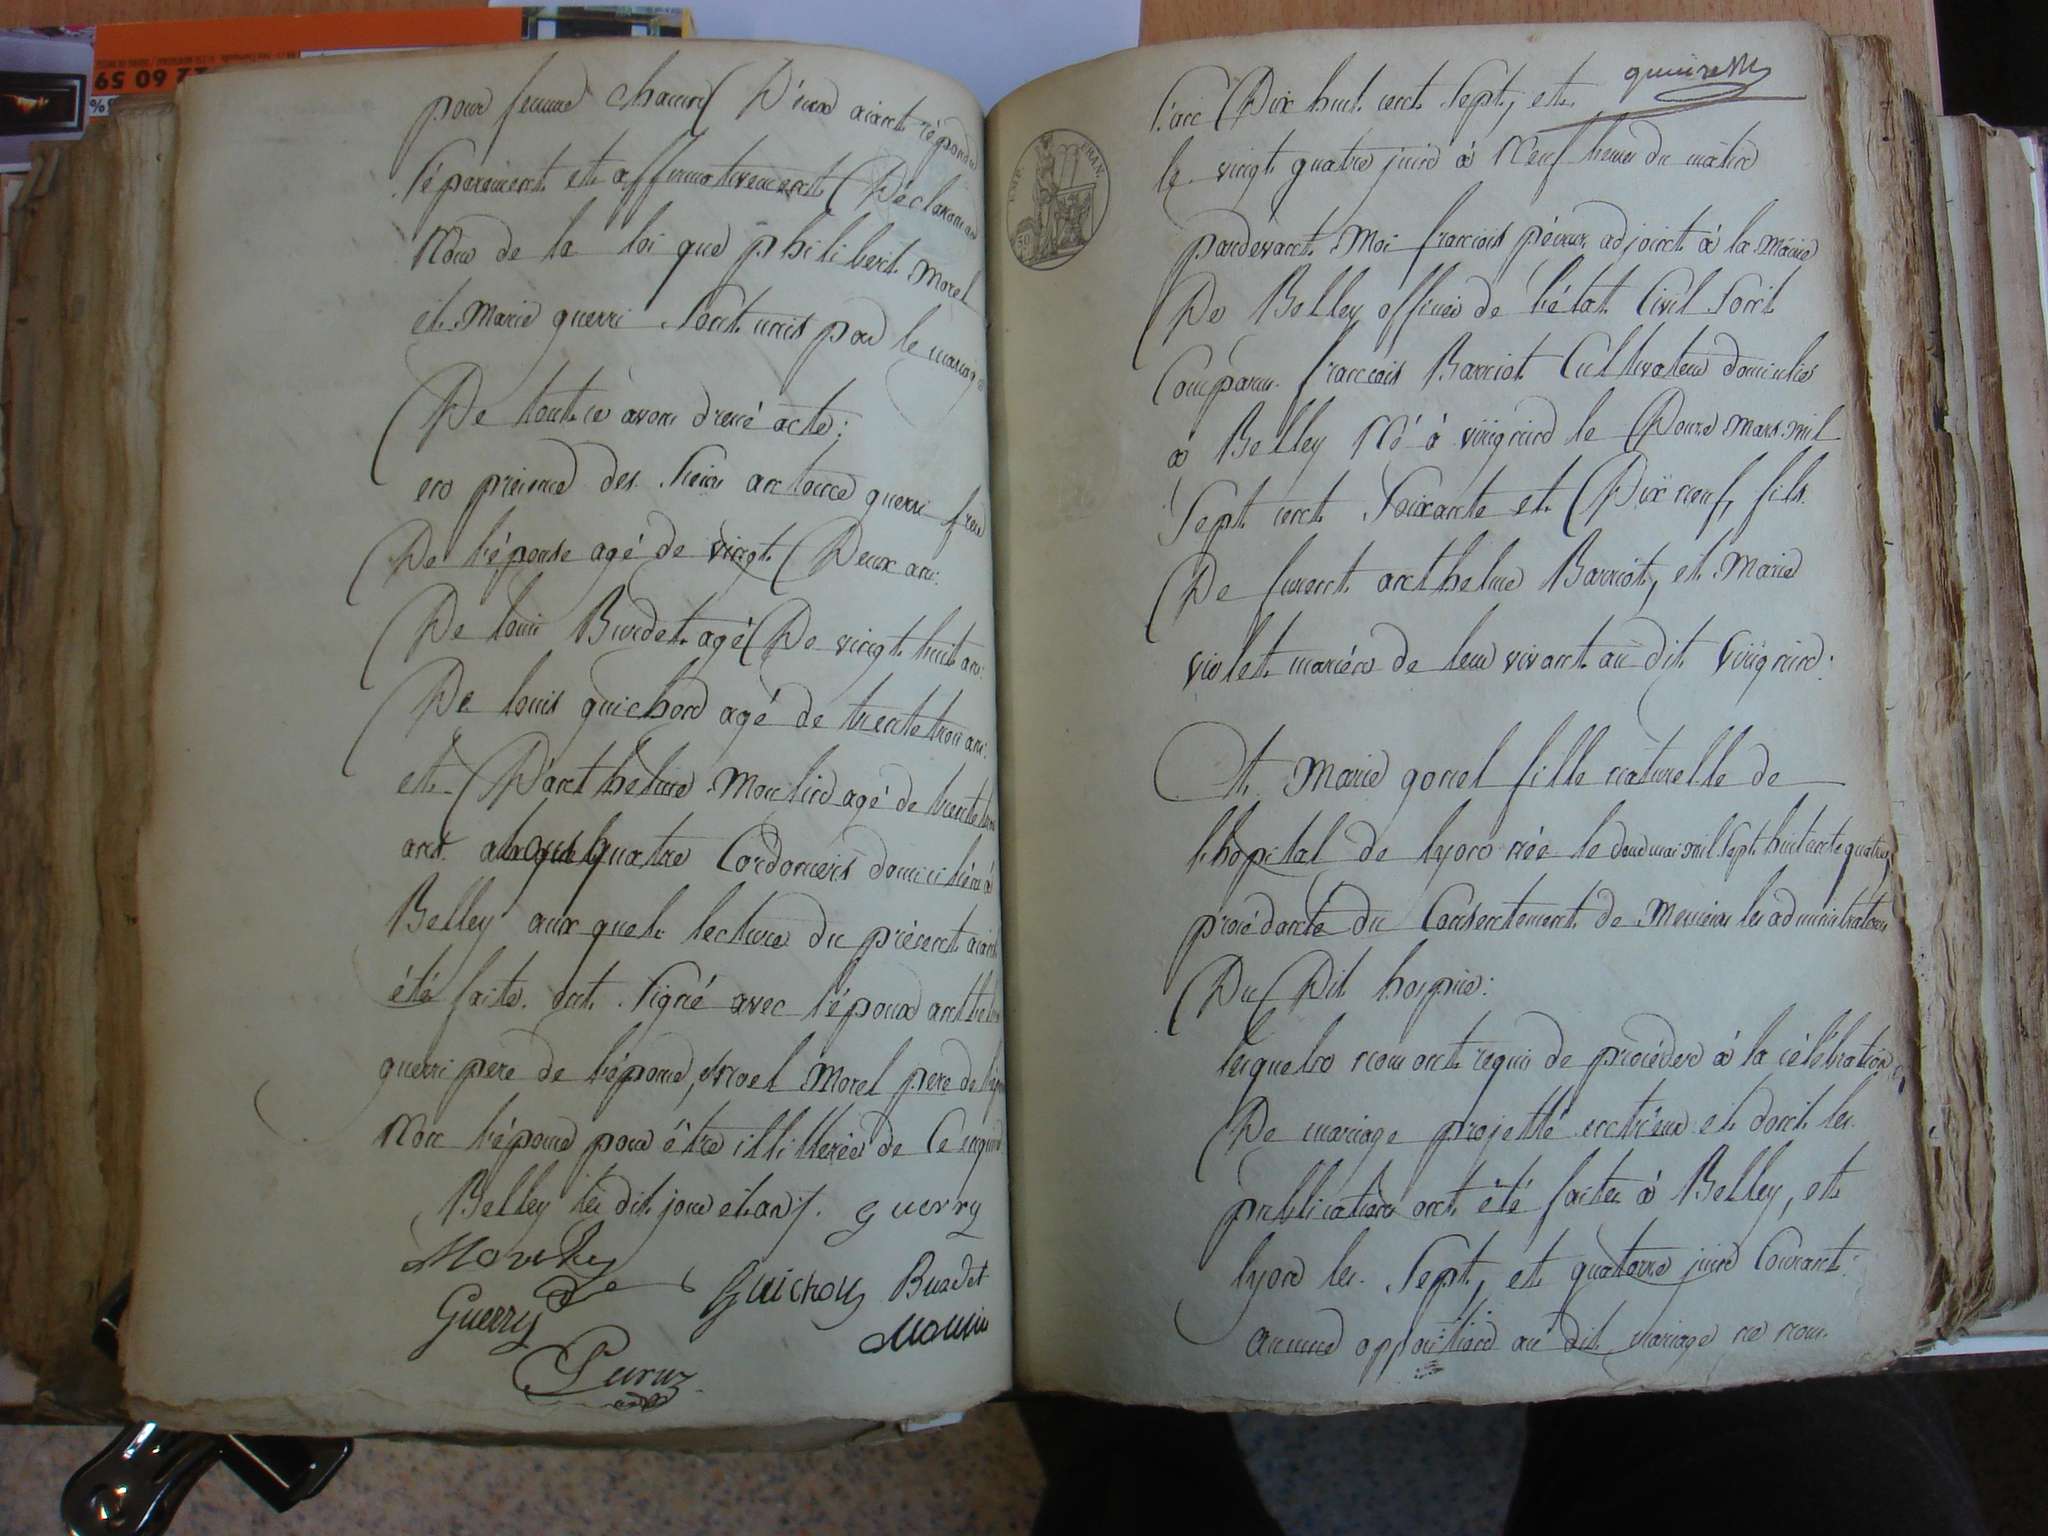 pour femme chacun D'eux aiant répondu
séparement et affirmativement Déclarons au
Nom de la loi que philibert Morel
et Marie guerri sont unis par le mariage
De tout ce avons dressé acte;
en présence des sieurs antoine guerri frere
De l'épouse agé de vingt Deux ans:
De louis Burdet agé De vingt huit ans:
De louis guichard agé de trente trois ans:
et D'anthelme Monlin agé de trente
ans quatre Cordoniers domiciliés à
Belley auxquels lecture du présent aiant
été faite ont signé avec l'époux anthelme
guerri pere de l'épouse, Noel Morel pere de
Non l'épouse pour être illitterée de ce enquise
Belley les dit jour et an. guerry
Morel
Guerry Guichard Burdet
Monlin
Peruz
60 59
EMP. FRAN.
50
L'an Dix huit cent sept, et
le vingt quatre juin à Neuf heures du matin
pardevant Moi francois péruz adjoint à la mairie
De Belley officier de l'état Civil sont
Comparus francois Barriot Cultivateur domicilié
à Belley Né à virignin le Douze mars mil
sept cent soixante et Dix neuf, fils
De furent anthelme Barriot, et Marie
violet mariés de leur vivant au dit virignin:
Et Marie gonel fille naturelle de
l'hopital de lyon née le douze mai mil sept huitante quatre,
procédante du Consentement de Messieurs les administrateurs
Du Dit hospice:
lesquels nous ont requis de procéder à la célébration
De mariage projetté entr'eux et dont les
publications ont été faites à Belley, et
lyon les sept, et quatorze juin Courant:
aucune opposition au dit mariage ne nous